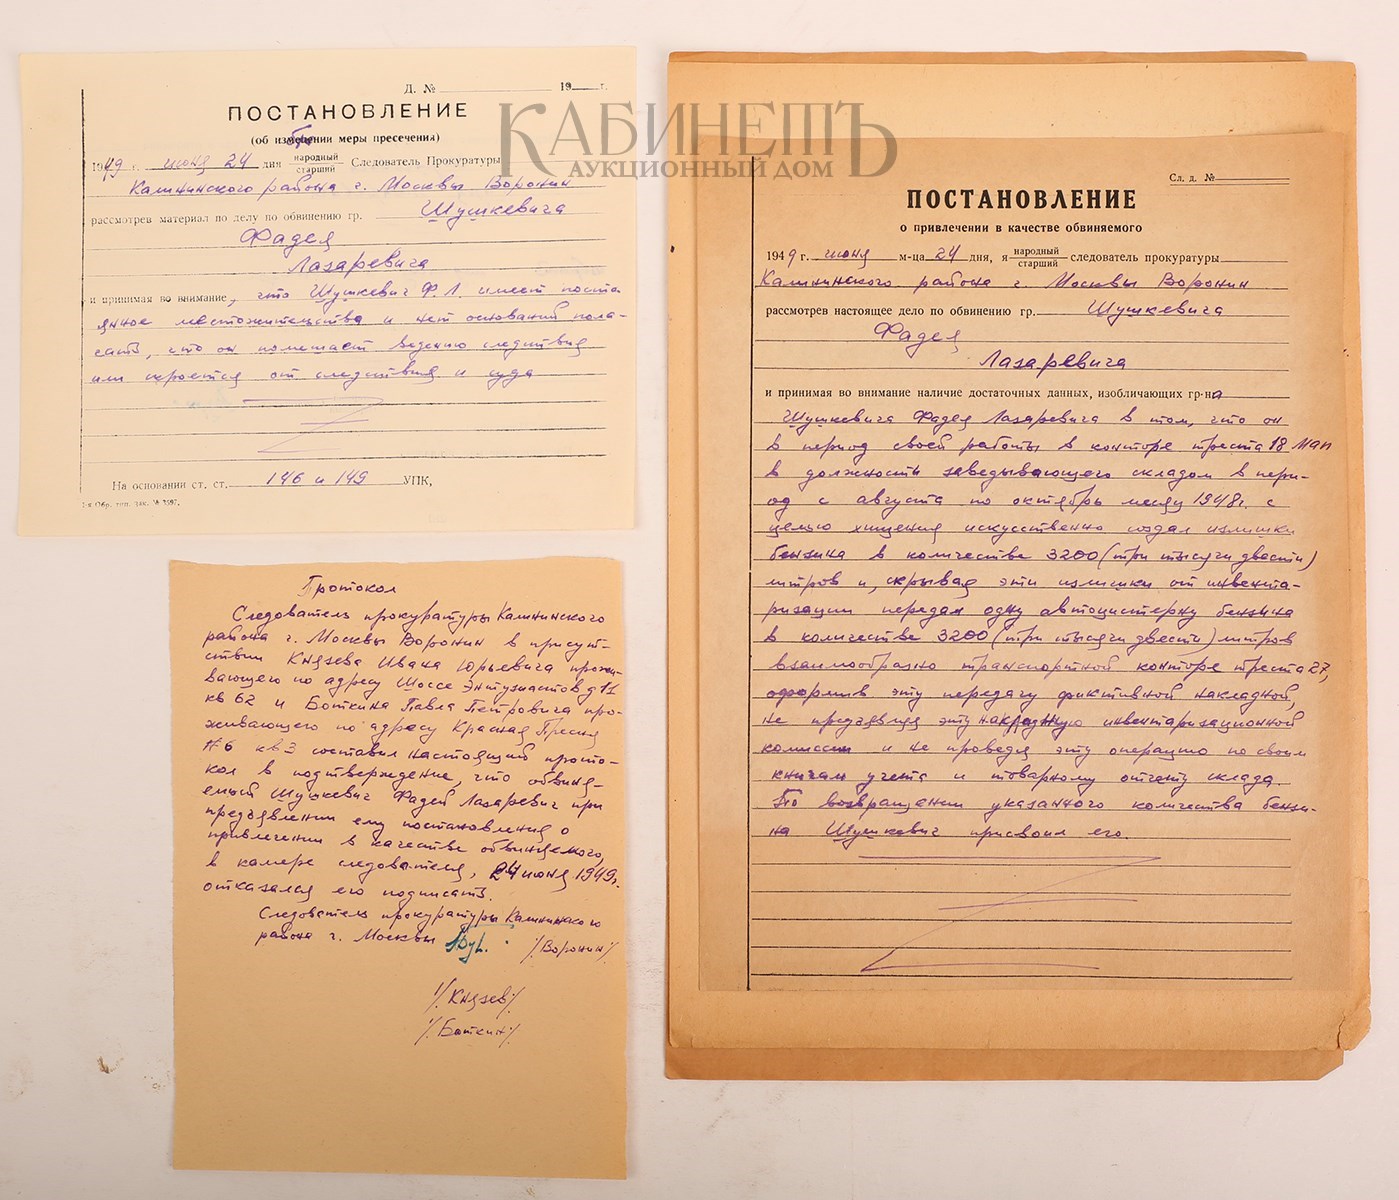 КАБИНЕТЪ
АУКЦИОННЫЙ ДОМ
Д. № 19 г.
ПОСТАНОВЛЕНИЕ
(об избрании меры пресечения)
1949 г. июня 24 дня народный старший Следователь Прокуратуры
Калининского района г. Москвы Воронин
рассмотрев материал по делу по обвинению гр. Шушкевича
Фадея
Лазаревича
и принимая во внимание, что Шушкевич Ф. Л. имеет посто
янное местожительства и нет оснований пола-
гать, что он помешает ведению следствия
или скроется от следствия и суда
На основании ст. ст. 146 и 149 УПК,
1-я Обр. тип. зак. № 3597.
Протокол
Следователь прокуратуры Калининского
района г. Москвы Воронин в присут-
ствии Князева Ивана Юрьевича прожи-
вающего по адресу Шоссе Энтузиастов д 11
кв 62 и Боткина Павла Петровича про-
живающего по адресу Красная Пресня
№6 кв 3 составил настоящий прото-
кол в подтверждение, что обвиня-
емый Шушкевич Фадей Лазаревич при
предъявлении ему постановления о
привлечении в качестве обвиняемого,
в камере следователя, 24 июня 1949г.
отказался его подписать.
Следователь прокуратуры Калининского
района г. Москвы /Воронин/
/Князев/
/Боткин/
Сл. д. №
ПОСТАНОВЛЕНИЕ
о привлечении в качестве обвиняемого
1949 г. июня м-ца 24 дня, я народный старший следователь прокуратуры
Калининского района г. Москвы Воронин
рассмотрев настоящее дело по обвинению гр. Шушкевича
Фадея
Лазаревича
и принимая во внимание наличие достаточных данных, изобличающих гр-на
Шушкевича Фадея Лазаревича в том, что он
в период своей работы в конторе треста 18 МАП
в должности заведывающего складом в пери-
од с августа по октябрь месяц 1948г. с
целью хищения искусственно создал излишки
бензина в количестве 3200 (три тысячи двести)
литров и, скрывая эти излишки от инвента-
ризации передал одну автоцистерну бензина
в количестве 3200 (три тысячи двести) литров
взаимообразно транспортной конторе треста 27,
оформив эту передачу фиктивной накладной,
не предъявив эту накладную инвентаризационной
комиссии и не проведя эту операцию по своим
книгам учета и товарному отчету склада.
По возвращении указанного количества бензи-
на Шушкевич присвоил его.